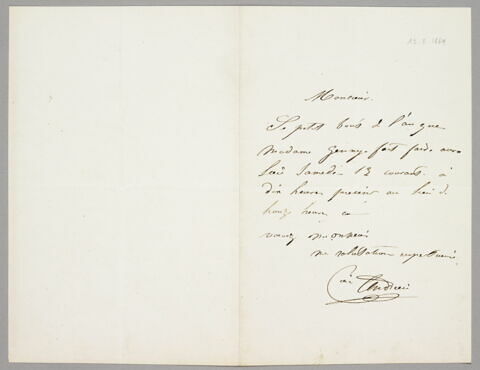 13.8.1864
Monsieur.
Le petit bout de l'an que
Madame Jenny fait faire aura
lieu Samedi 13 courant à
dix heures précise au lieu de
honze heures
vous monsieur
me salutation respectueuse
Andrieu